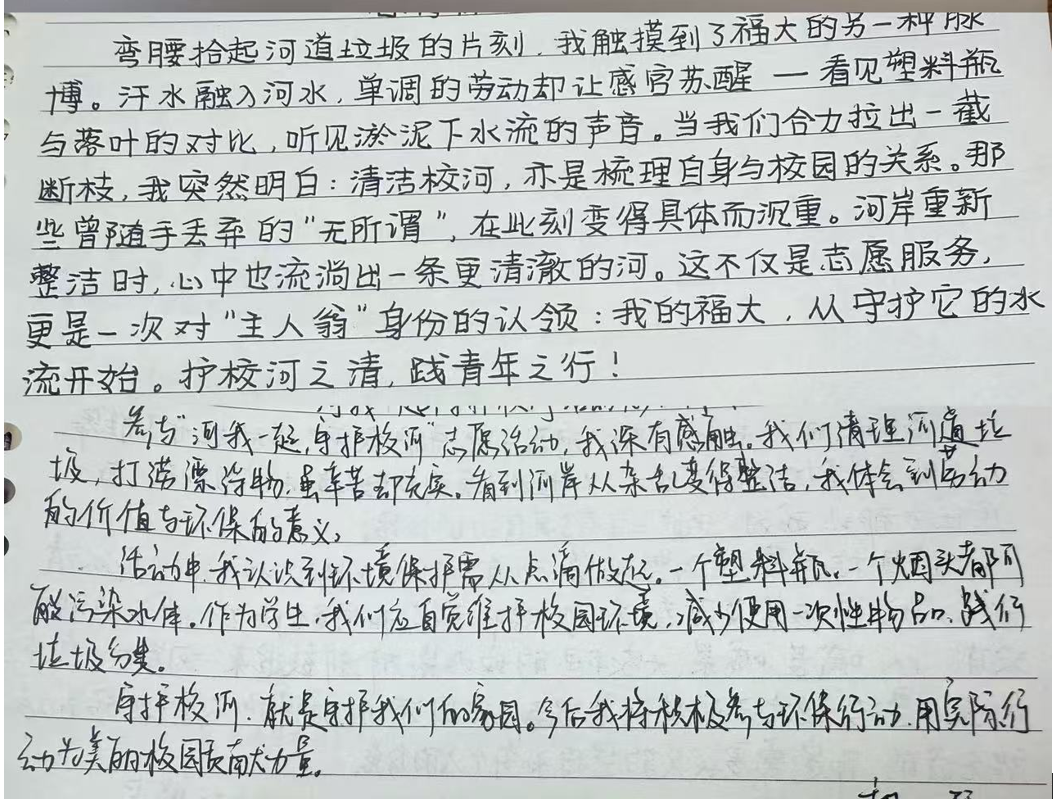 弯腰拾起河道垃圾的片刻，我触摸到了福大的另一种脉
博。汗水融入河水，单调的劳动却让感官苏醒——看见塑料瓶
与落叶的对比，听见淤泥下水流的声音。当我们合力拉出一截
断枝，我突然明白：清洁校河，亦是梳理自身与校园的关系。那
些曾随手丢弃的“无所谓”，在此刻变得具体而沉重。河岸重新
整洁时，心中也流淌出一条更清澈的河。这不仅是志愿服务，
更是一次对“主人翁”身份的认领：我的福大，从守护它的水
流开始。护校河之清，践青年之行！
参与“河我一起，守护校河”志愿活动，我深有感触。我们清理河道垃
圾，打捞漂浮物，虽辛苦却充实。看到河岸从杂乱变得整洁，我体会到劳动
的价值与环保的意义。
活动中，我认识到环境保护需从点滴做起。一个塑料瓶、一个烟头都可
能污染水体。作为学生，我们应自觉维护校园环境，减少使用一次性物品，践行
垃圾分类。
守护校河，就是守护我们的家园。今后我将积极参与环保行动，用实际行
动为美丽校园贡献力量。